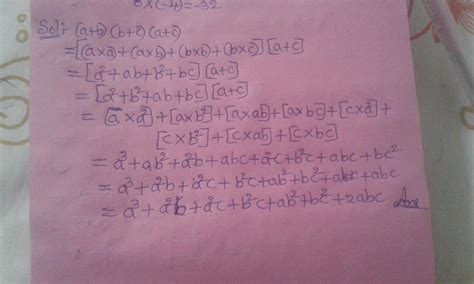 8×(-4)=-32
Sol:- (a+b)(b+c)(a+c)
=[(a×a)+(a×b)+(b×b)+(b×c)][a+c]
=[a²+ab+b²+bc][a+c]
=[a²+b²+ab+bc][a+c]
=[a×a²]+[a×b²]+[a×ab]+[a×bc]+[c×a²]+
[c×b²]+[c×ab]+[c×bc]
=a³+ab²+a²b+abc+a²c+b²c+abc+bc²
=a³+a²b+a²c+b²c+ab²+bc²+abc+abc
=a³+a²b+a²c+b²c+ab²+bc²+2abc Ans